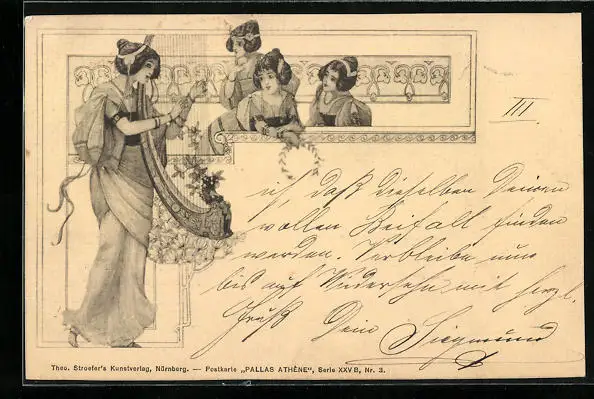 III.
ich, daß dieselben Deinen
vollen Beifall finden
werden. Verbleibe nun
bis auf Wiedersehn mit herzl.
Gruß Dein Siegmund
Theo. Stroefer's Kunstverlag, Nürnberg. — Postkarte „PALLAS ATHÈNE", Serie XXV B, Nr. 3.